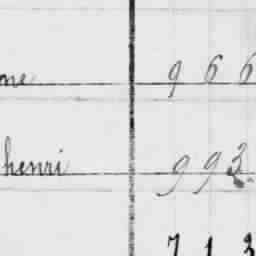 one 966
henri 993.
713